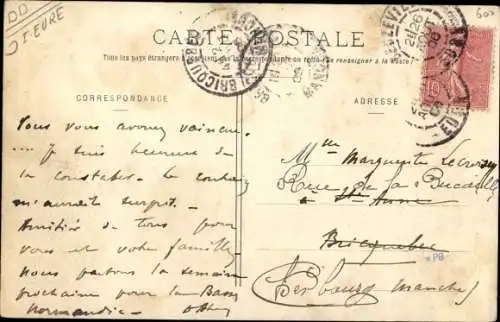 DD
ST EURE
CARTE POSTALE
Tous les pays étrangers n'acceptent pas la correspondance au recto. (Se renseigner à la Poste)
CORRESPONDANCE
ADRESSE
Vous vous avouez vaincu.
... Je suis heureuse de
la constater. Le contraire
m'aurait surpris.
Amitiés de tous pour
vous et votre famille
Nous partons la semaine
prochaine pour la Basse
Normandie
Mlle Marguerite
Rue de la Bucaille
a Ste Anne
Bricquebec
PB
Cherbourg (Manche)
BRICQUEBEC
MANCHE
EURE
10